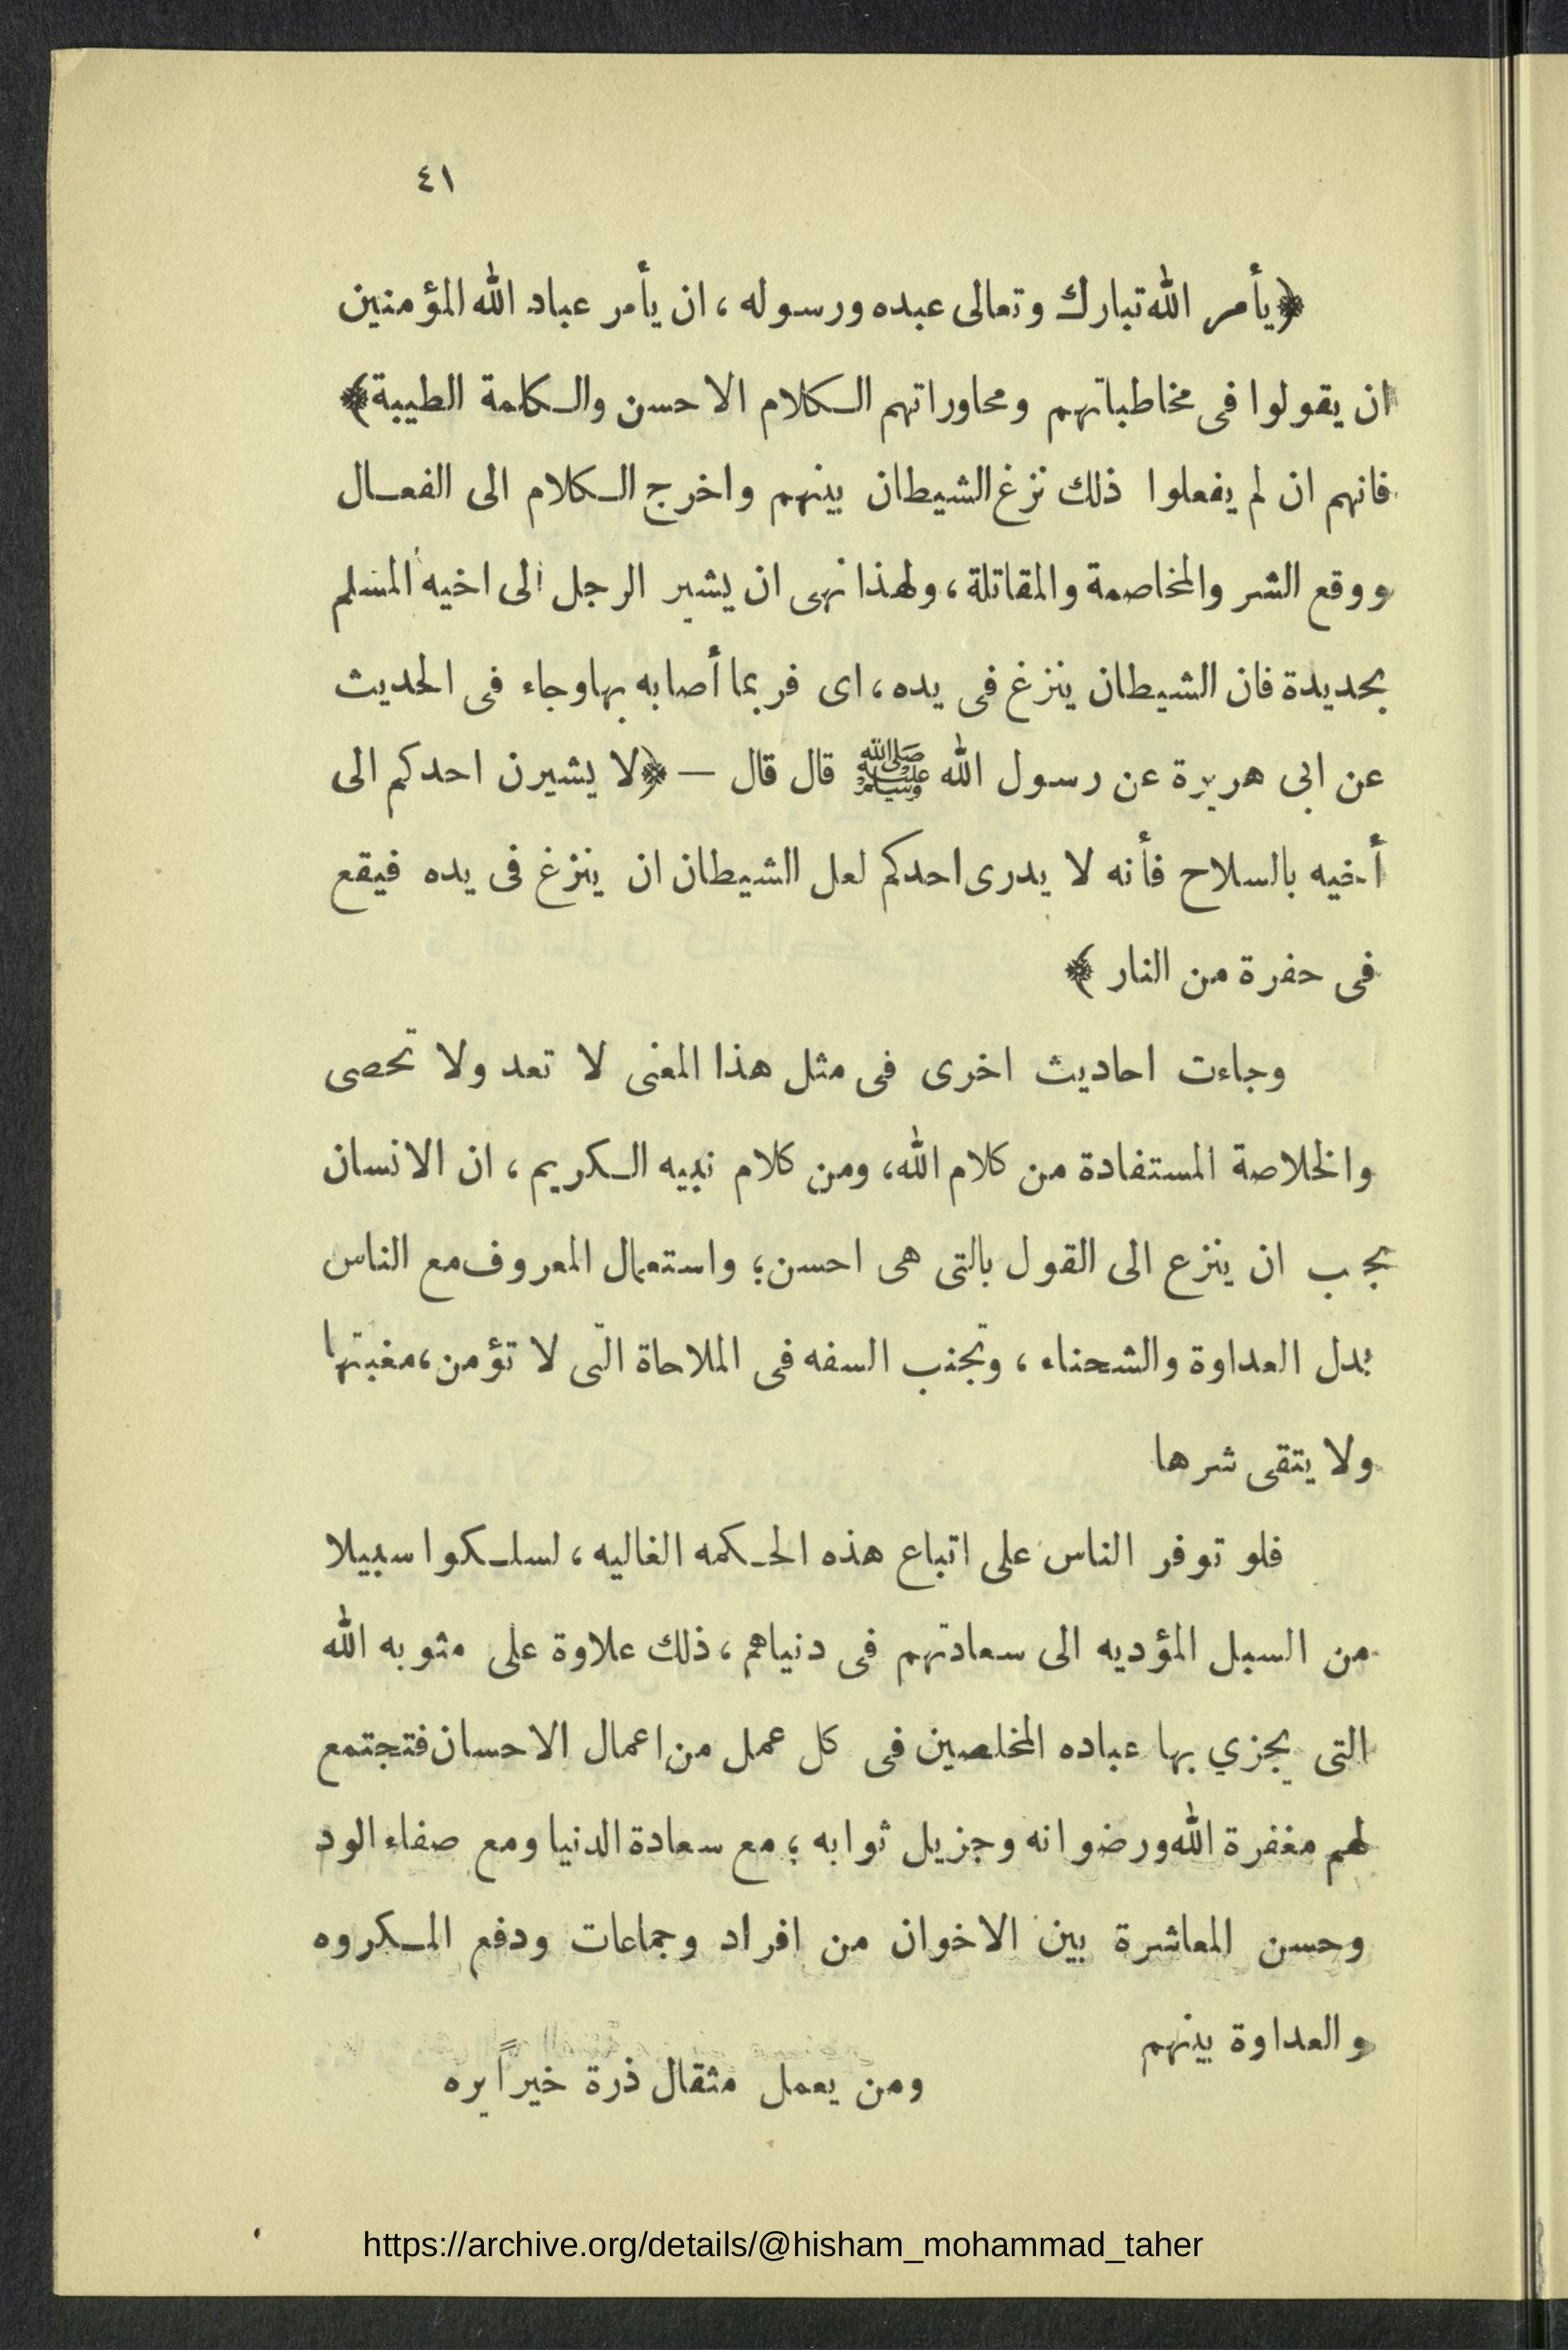 ٤١
﴿يأمر الله تبارك وتعالى عبده ورسوله ، ان يأمر عباد الله المؤمنين
ان يقولوا فى مخاطباتهم ومحاوراتهم الكلام الاحسن والكلمة الطيبة﴾
فانهم ان لم يفعلوا ذلك نزغ الشيطان بينهم واخرج الكلام الى الفعال
ووقع الشر والمخاصمة والمقاتلة ، ولهذا نهى ان يشير الرجل الى اخيه المسلم
بحديدة فان الشيطان ينزغ فى يده ، اى فربما أصابه بها وجاء فى الحديث
عن ابى هريرة عن رسول الله ﷺ قال قال — ﴿لا يشيرن احدكم الى
أخيه بالسلاح فأنه لا يدرى احدكم لعل الشيطان ان ينزغ فى يده فيقع
فى حفرة من النار ﴾
وجاءت احاديث اخرى فى مثل هذا المعنى لا تعد ولا تحصى
والخلاصة المستفادة من كلام الله، ومن كلام نبيه الكريم ، ان الانسان
يجب ان ينزع الى القول بالتى هى احسن ؛ واستعمال المعروف مع الناس
بدل العداوة والشحناء ، وتجنب السفه فى الملاحاة التى لا تؤمن ، مغبتها
ولا يتقى شرها
فلو توفر الناس على اتباع هذه الحكمه الغاليه ، لسلكوا سبيلا
من السبل المؤديه الى سعادتهم فى دنياهم ، ذلك علاوة على مثوبه الله
التى يجزي بها عباده المخلصين فى كل عمل من اعمال الاحسان فتجتمع
لهم مغفرة الله ورضوانه وجزيل ثوابه ؛ مع سعادة الدنيا ومع صفاء الود
وحسن المعاشرة بين الاخوان من افراد وجماعات ودفع المكروه
والعداوة بينهم
ومن يعمل مثقال ذرة خيراً يره
https://archive.org/details/@hisham_mohammad_taher